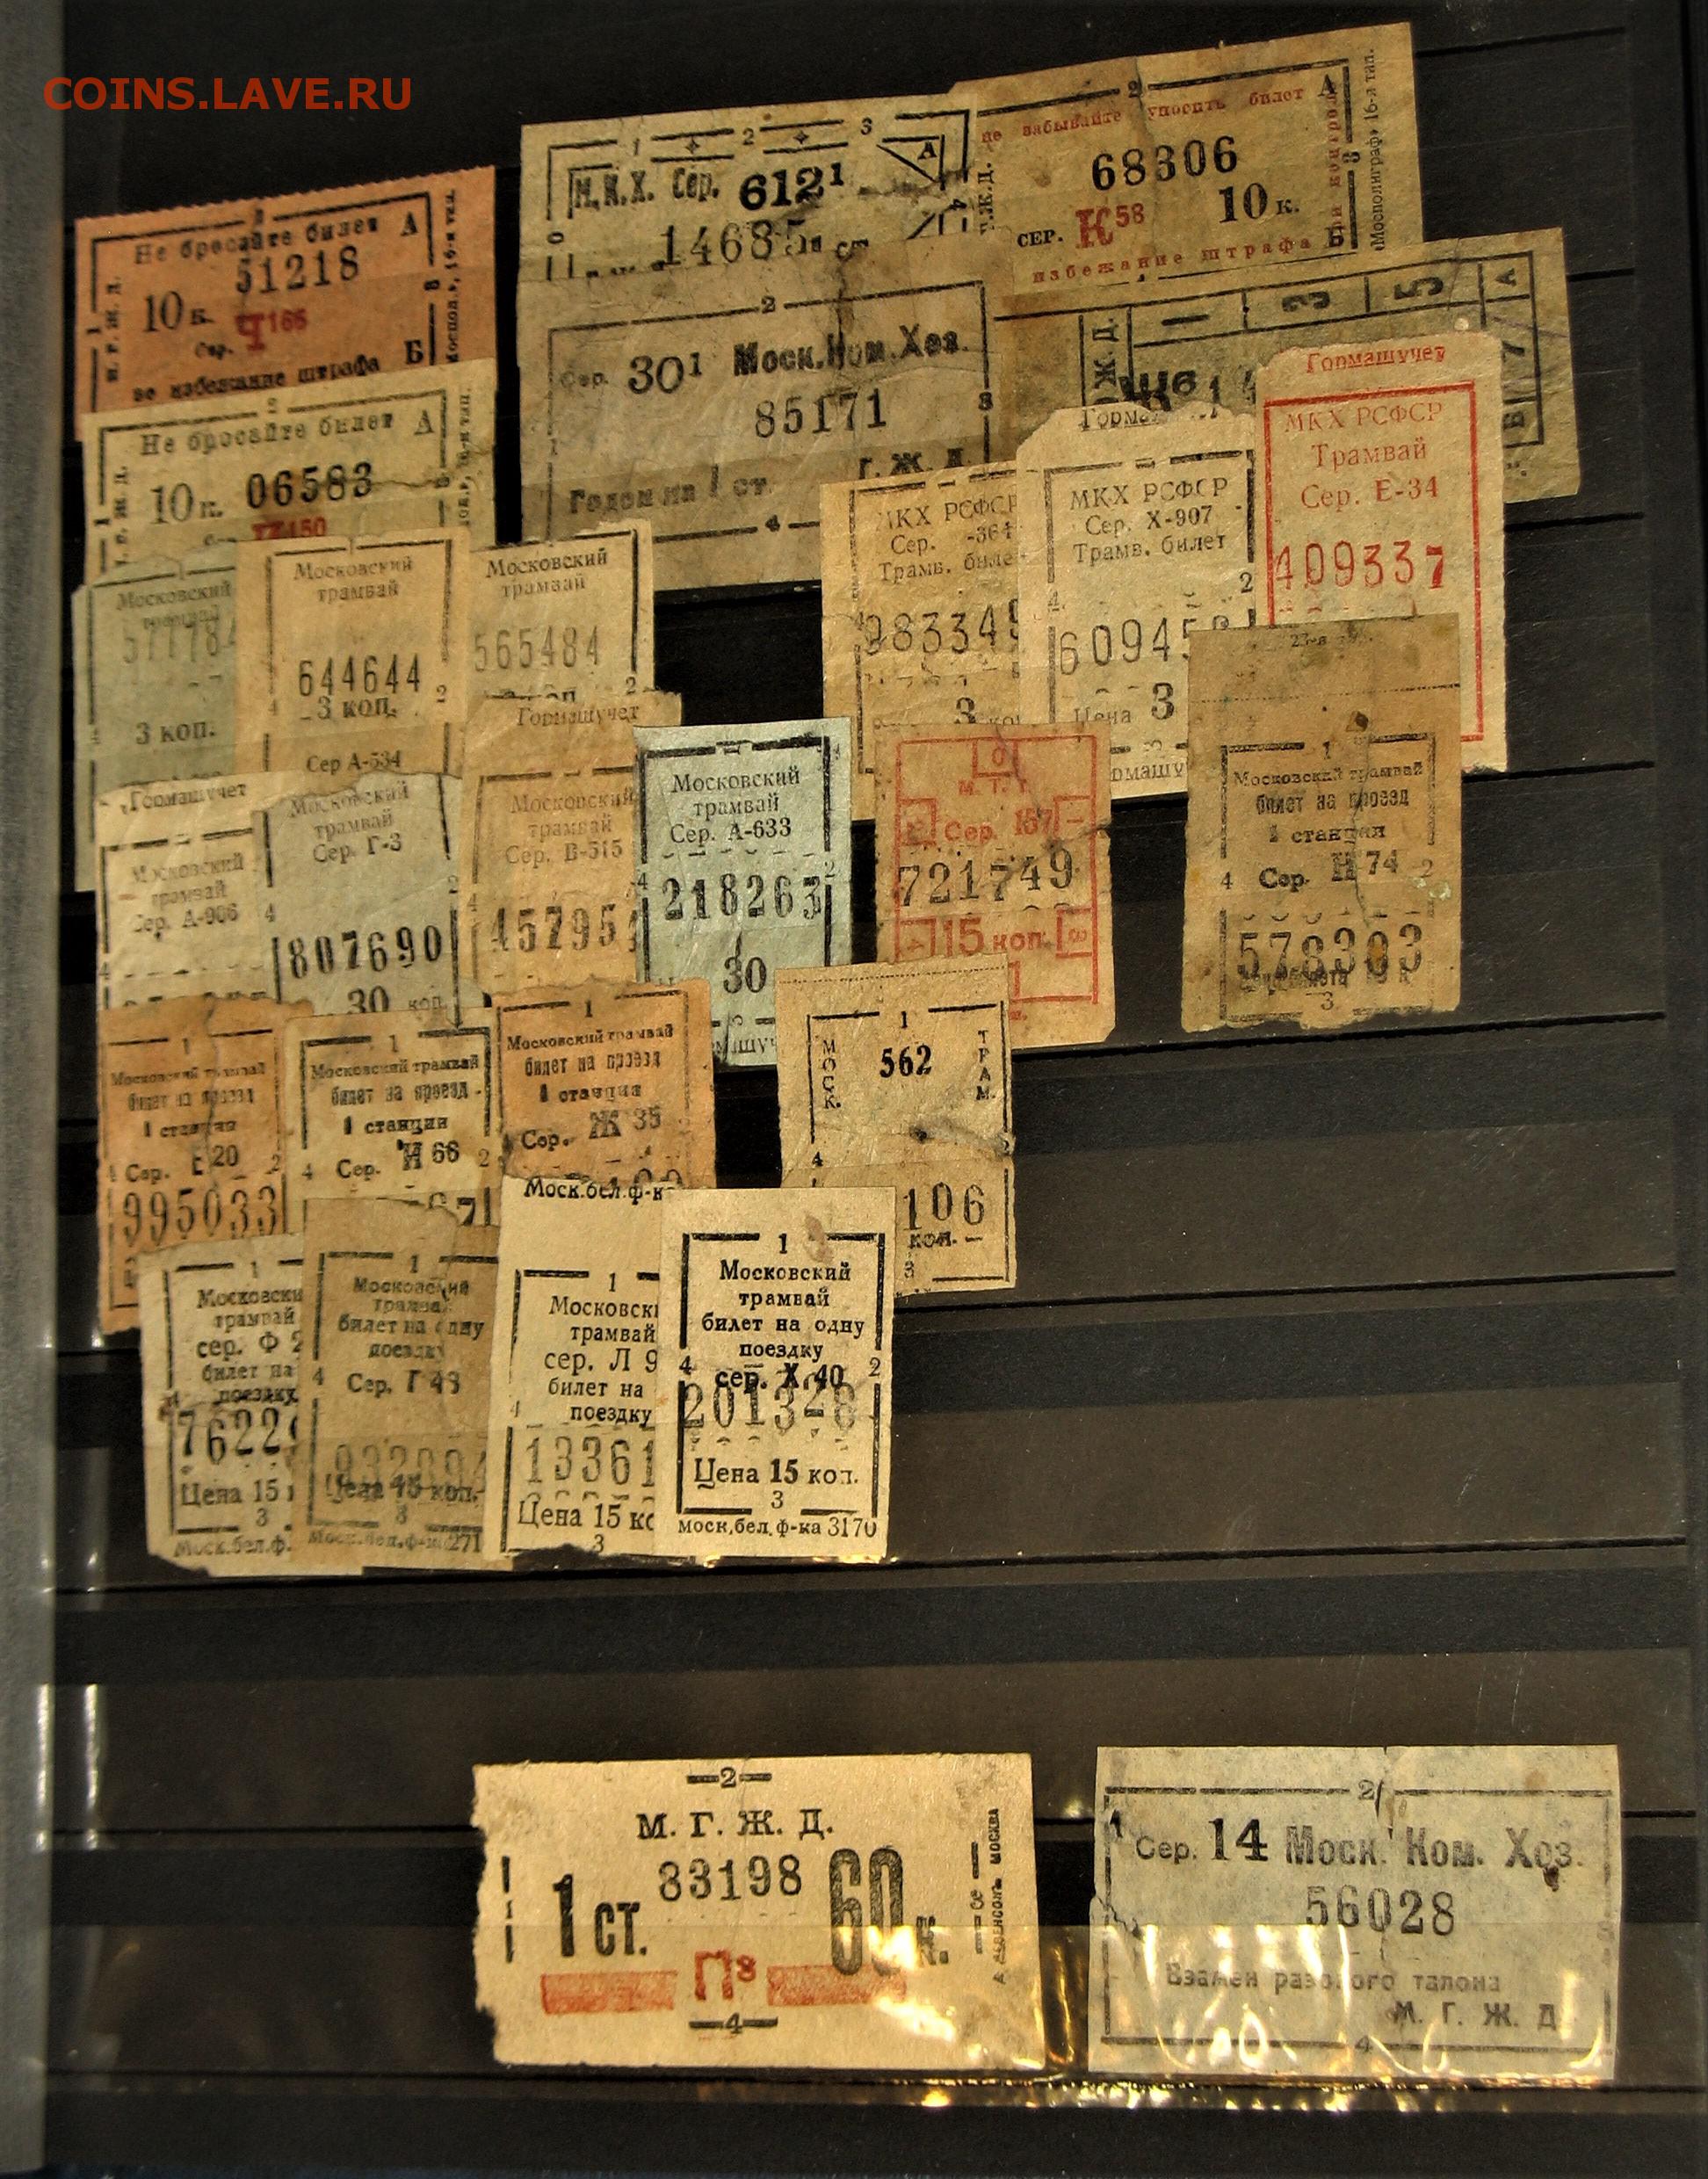 COINS.LAVE.RU
Не бросайте билет А
51218
10 к.
Сер. Ч 165
во избежание штрафа Б
М. Г. Ж. Д.
Моспол., 16-я тип.
1 2 3
А
М.К.Х. Сер. 612¹
14685
2
не забывайте уносить билет А
68306
СЕР. К 58 10 к.
избежание штрафа Б
при контроле
«Мосполиграф» 16-я тип.
2
Сер. 30¹ Моск.Ком.Хоз.
85171
3
Годен на 1 ст. Г. Ж. Д.
4
Ж. Д.
1 3 5 А
7
2
Не бросайте билет А
10 к. 06583
150
Гормашучет
МКХ РСФСР
Трамвай
Сер. Е-34
409337
МКХ РСФСР
Сер. Х-907
Трамв. билет
2
4
60945
Цена 3
МКХ РСФСР
Сер. -364
Трамв. биле
983349
3 ко
Московский
57778
3 коп.
Московский
трамвай
644644
3 коп.
2
Сер А-534
Московский
трамвай
565484
2
Гормашучет
Московский
трамвай
Сер. А-906
Московский
трамвай
Сер. Г-3
2
4
807690
30 коп.
Гормашучет
Московский
трамвай
Сер. В-515
45795
Московский
трамвай
Сер. А-633
4 2
218263
30
3
0
М. Т. Т.
Сер. 167
721749
15 коп.
1
Московский трамвай
билет на проезд
1 станция
Сер. Н 74
4 2
578303
3
1
Московский трамвай
билет на проезд
1 станция
Сер. Е 20
4 2
995033
1
Московский трамвай
билет на проезд
1 станция
Сер. Н 66
4 2
1
Московский трамвай
билет на проезд
1 станция
Сер. Ж 35
1
МОСК. 562 ТРАМ.
4 2
106
коп.
3
1
Московски
трамвай
сер. Ф 2
билет на
поездку
7622
Цена 15
3
Моск.бел.ф.
1
Московский
трамвай
билет на одну
поездку
4
Сер. Г 43
Цена 15 коп.
3
Моск.бел.ф-ка 271
Моск.бел.ф-к
1
Московск
трамвай
сер. Л 9
билет на
поездку
13361
Цена 15 ко
3
1
Московский
трамвай
билет на одну
поездку
4 2
сер. Х 40
201328
Цена 15 коп.
3
моск.бел.ф-ка 3170
2
М. Г. Ж. Д.
83198
1 ст. 60 к.
П 8
3
4
МОСКВА
2
1
Сер. 14 Моск. Ком. Хоз.
56028
Взамен разового талона
М. Г. Ж. Д.
4